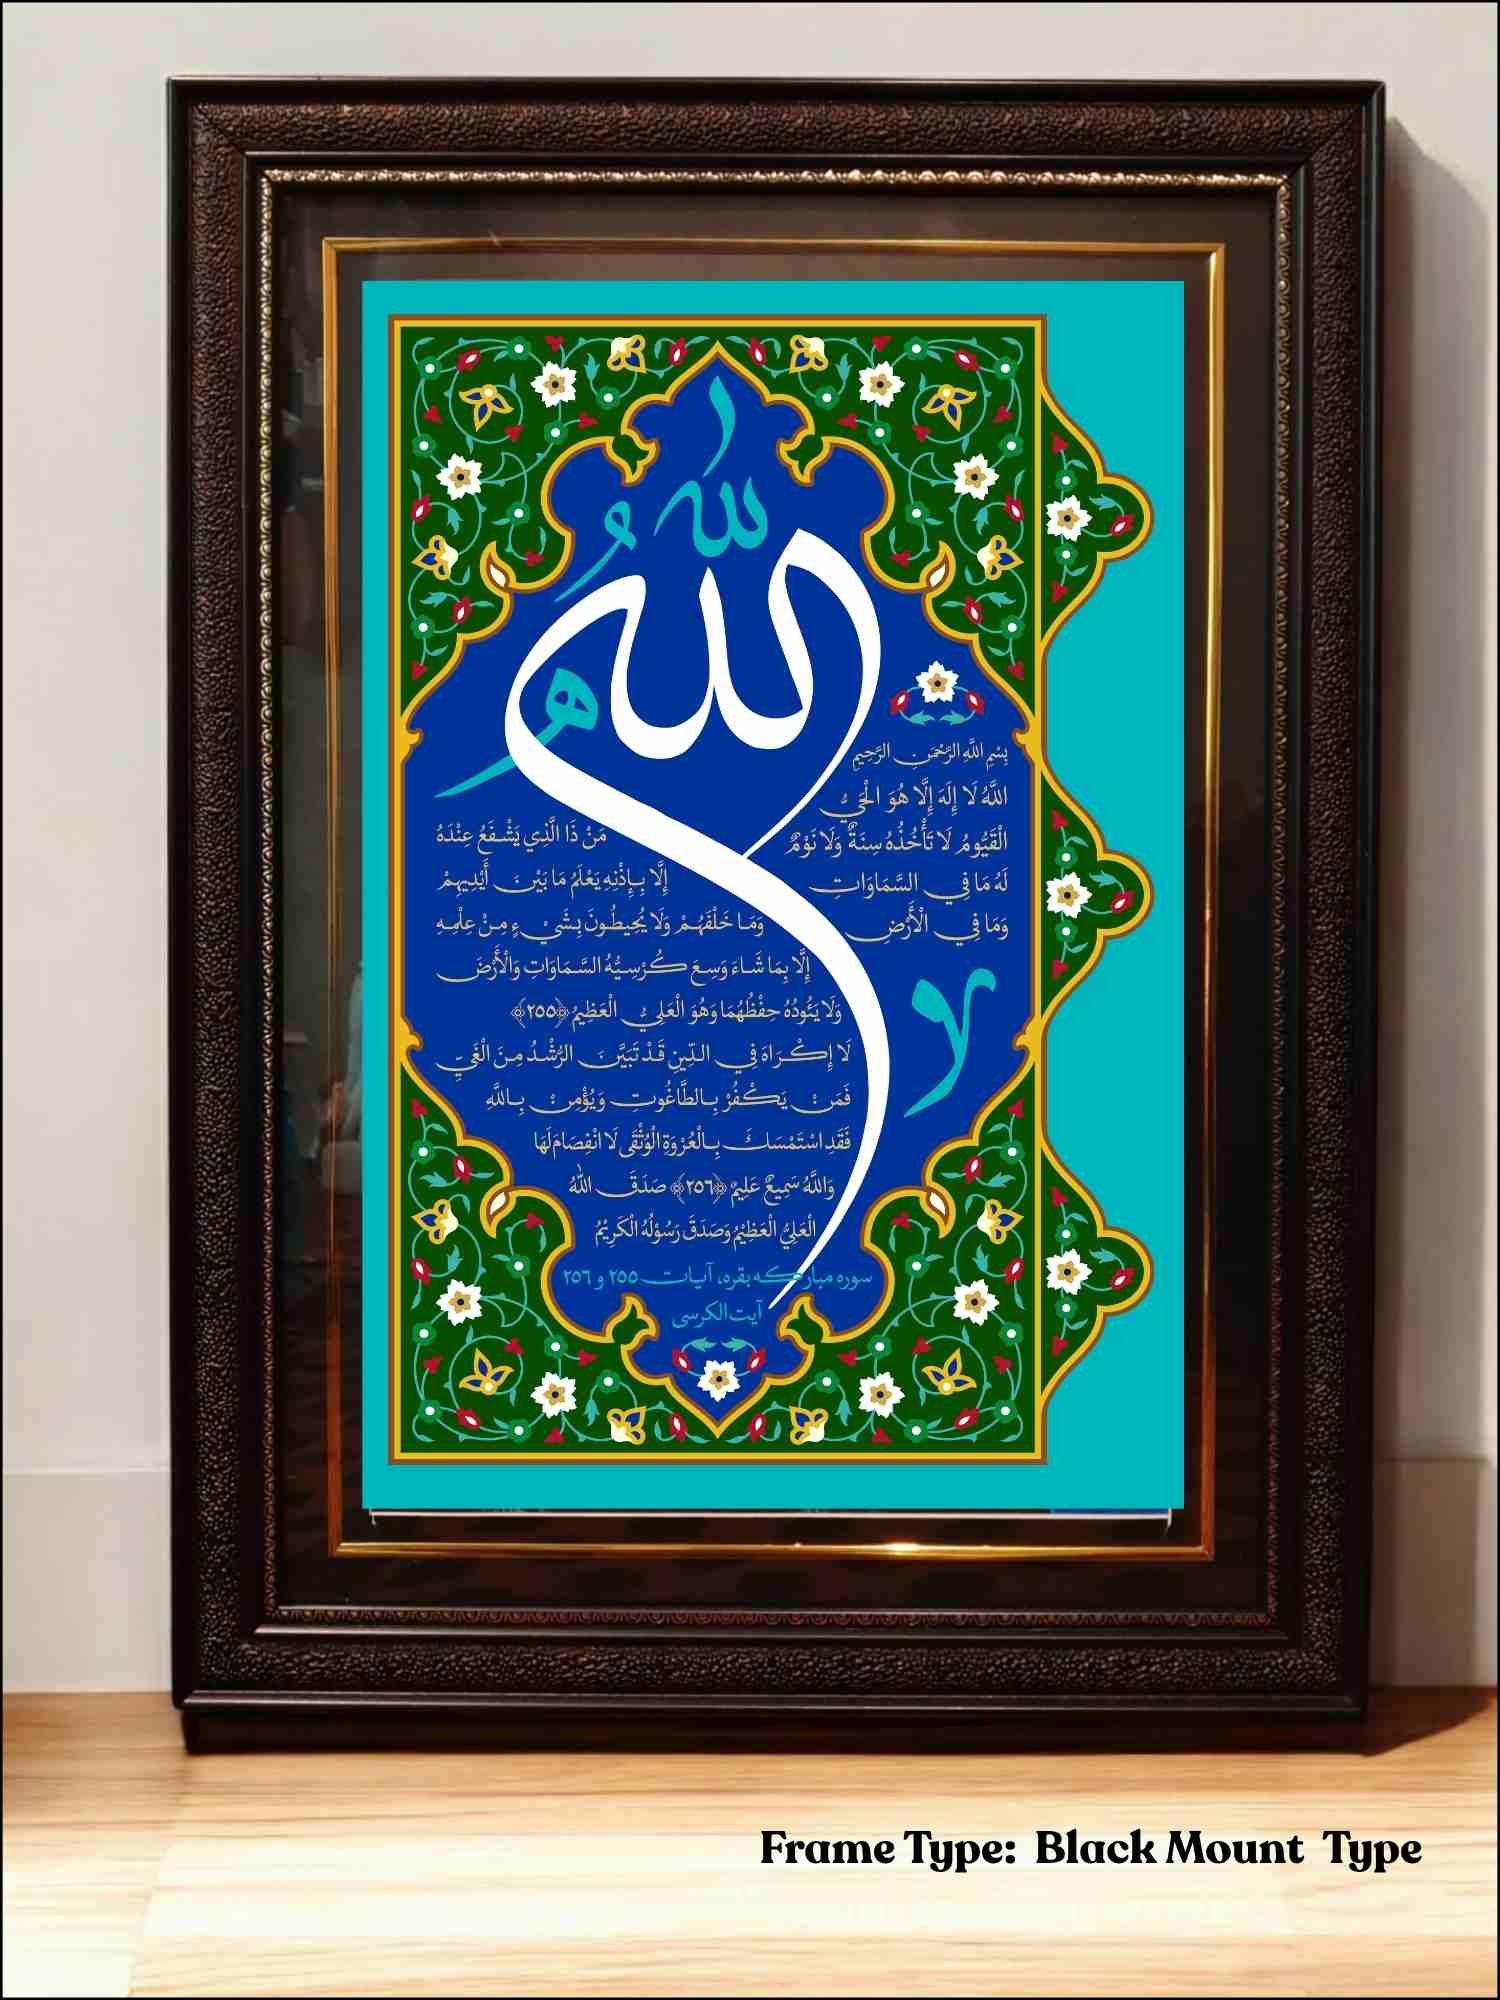 الله
بِسْمِ اللَّهِ الرَّحْمَنِ الرَّحِيمِ
اللَّهُ لَا إِلَهَ إِلَّا هُوَ الْحَيُّ
الْقَيُّومُ لَا تَأْخُذُهُ سِنَةٌ وَلَا نَوْمٌ
لَهُ مَا فِي السَّمَاوَاتِ
وَمَا فِي الْأَرْضِ
مَنْ ذَا الَّذِي يَشْفَعُ عِنْدَهُ
إِلَّا بِإِذْنِهِ يَعْلَمُ مَا بَيْنَ أَيْدِيهِمْ
وَمَا خَلْفَهُمْ وَلَا يُحِيطُونَ بِشَيْءٍ مِنْ عِلْمِهِ
إِلَّا بِمَا شَاءَ وَسِعَ كُرْسِيُّهُ السَّمَاوَاتِ وَالْأَرْضَ
وَلَا يَئُودُهُ حِفْظُهُمَا وَهُوَ الْعَلِيُّ الْعَظِيمُ ﴿۲۵۵﴾
لَا إِكْرَاهَ فِي الدِّينِ قَدْ تَبَيَّنَ الرُّشْدُ مِنَ الْغَيِّ
فَمَنْ يَكْفُرْ بِالطَّاغُوتِ وَيُؤْمِنْ بِاللَّهِ
فَقَدِ اسْتَمْسَكَ بِالْعُرْوَةِ الْوُثْقَى لَا انْفِصَامَ لَهَا
وَاللَّهُ سَمِيعٌ عَلِيمٌ ﴿۲۵۶﴾ صَدَقَ اللهُ
الْعَلِيُّ الْعَظِيْمُ وَصَدَقَ رَسُوْلُهُ الْكَرِيْمُ
سوره مبارکه بقره، آیات ۲۵۵ و ۲۵۶
آیت‌الکرسی
Frame Type: Black Mount Type